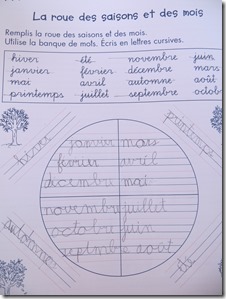 La roue des saisons et des mois
Remplis la roue des saisons et des mois.
Utilise la banque de mots. Écris en lettres cursives.
hiver été novembre juin
janvier février décembre mars
mai avril automne août
printemps juillet septembre octob
hiver printemps
janvier mars
février avril
décembre mai
novembre juillet
octobre juin
septembre août
automne été